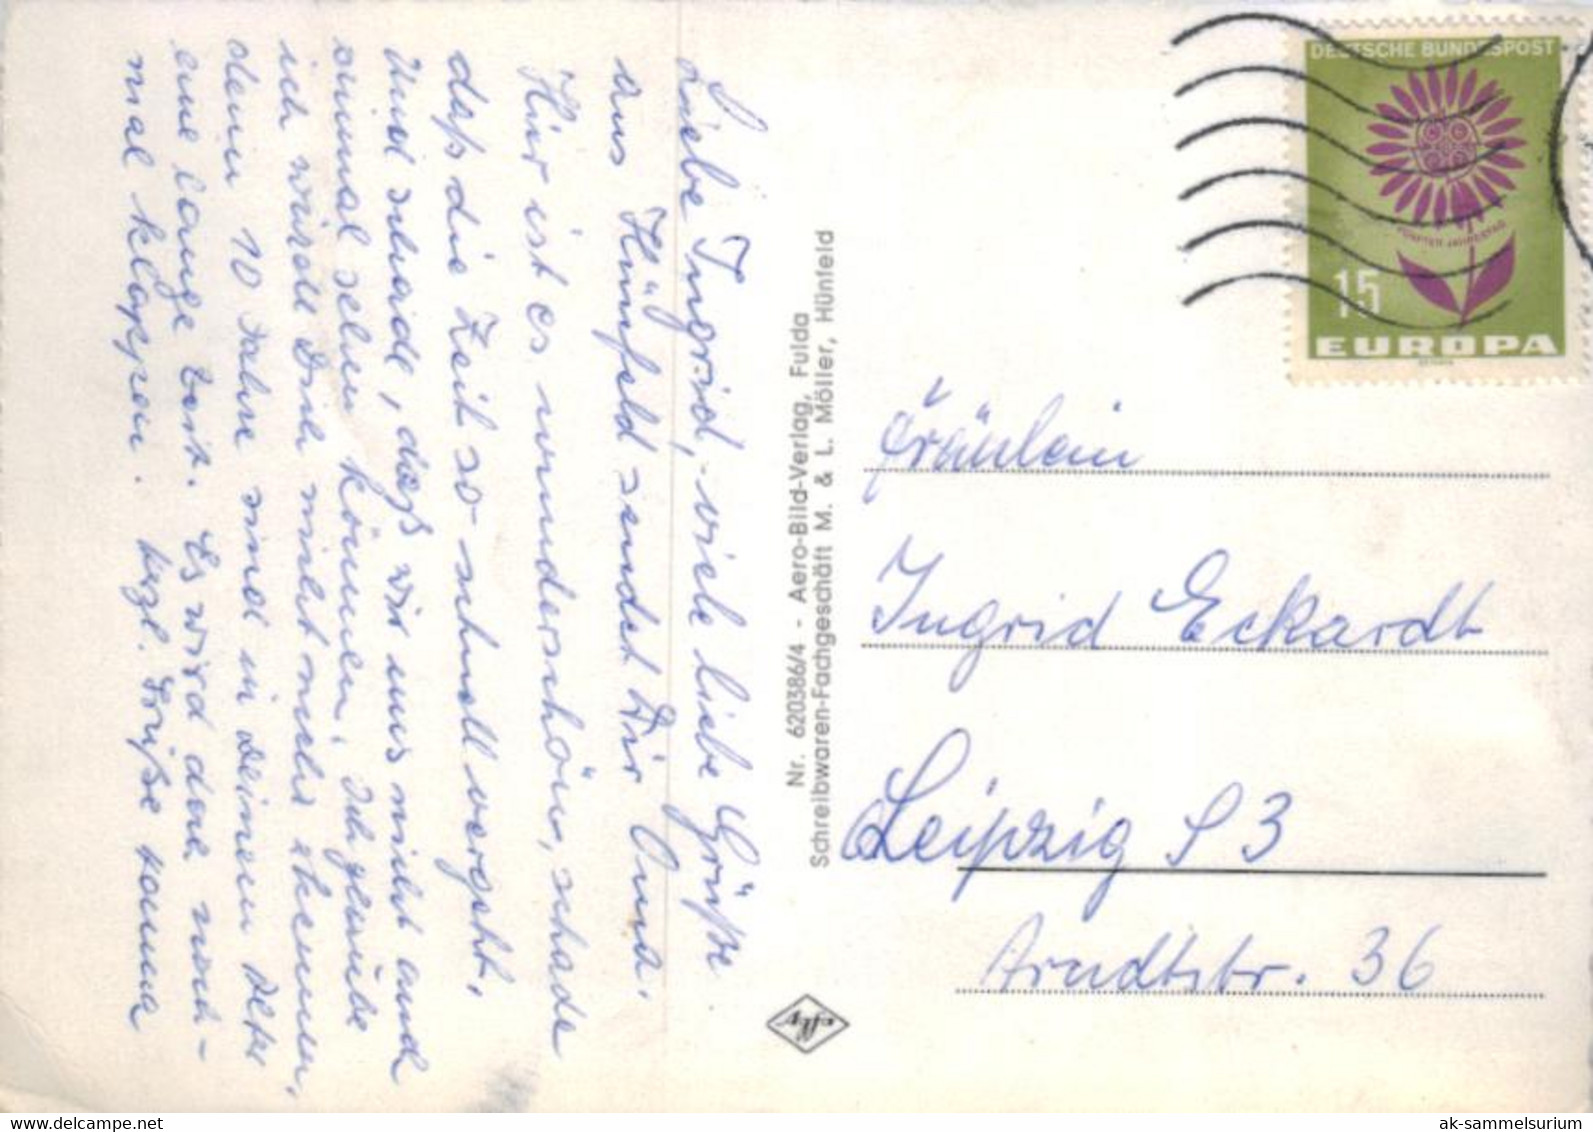 Liebe Ingrid, - viele liebe Grüße
aus Hünfeld sendet Dir Oma.
Hier ist es wunderschön, schade
daß die Zeit so schnell vergeht.
Und schade, daß wir uns nicht auch
einmal sehen können. Ich glaube
ich würde Dich nicht mehr kennen,
denn 10 Jahre sind in Deinem Alter
eine lange Zeit. Es wird doch noch-
mal klappen. Herzl. Grüße
Nr. 620386/4 - Aero-Bild-Verlag, Fulda
Schreibwaren-Fachgeschäft M. & L. Möller, Hünfeld
DEUTSCHE BUNDESPOST
FÜNFTER JAHRESTAG
15
EUROPA
Fräulein
Ingrid Eckardt
Leipzig S 3
Arndtstr. 36
ak-sammelsurium